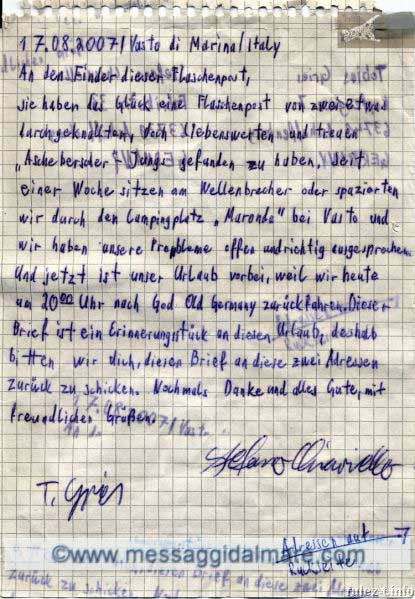 17.08.2007/ Vasto di Marina/Italy
An den Finder dieser Flaschenpost,
sie haben das Glück eine Flaschenpost von zwei etwas
durchgeknallten, doch Liebenswerten und treuen
„Aschebescher"-Jungs gefunden zu haben, seit
einer Woche sitzen am Wellenbrecher oder spazierten
wir durch den Campingplatz „Maronda" bei Vasto und
wir haben unsere Propbleme offen und richtig ausgesprochen.
Und jetzt ist unser Urlaub vorbei, weil wir heute
um 20⁰⁰ Uhr nach God Old Germany zurückfahren. Dieser
Brief ist ein Erinnerungsstück an diesen Urlaub, deshalb
bitten wir dich, diesen Brief an diese zwei Adressen
zurück zu schicken. Nochmals Danke und alles Gute, mit
freundlichen Grüßen.
Stefano
T.
Adressen auf →
Rückseite
©www.messaggidalmare.com
rulez-t.info